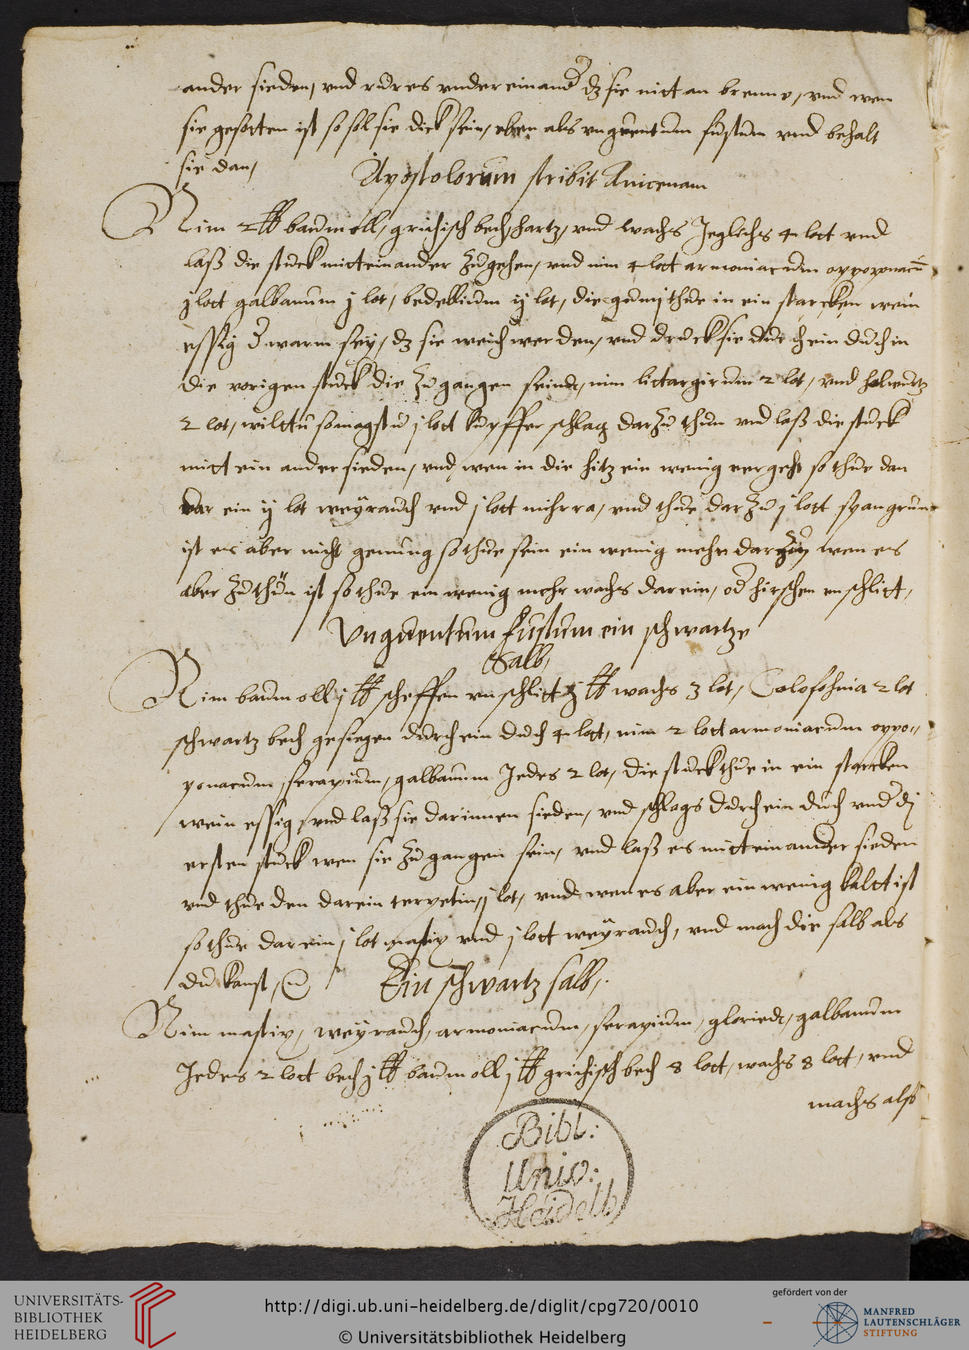 ander sieden, vnd rüres vnder einand dz sie nitt an brenne, vnd wen
sie gesotten ist so sol sie dick sein, eben als vnguentum fuscum vnd behalt
sie dan,
Apostolorum scribit Auicenam
Nim 2 ℔ baumoll, grichisch bech, hartz, vnd wachs Jeglichs 4 lott vnd
laß die stuck mitteinander zugehen, vnd nim 4 lott armoniacum oppoponacū
j lott galbanum j lot, bedellium ij lot, die gumj thue in ein starcken wein
essig d warm sey, dz sie weich werden, vnd druck sie durch ein duch in
die vorigen stuck die zugangen seindt, nim littargirum 2 lot, vnd holwurtz
2 lot, wilttu so magstu j lott kupffer schlag darzu thun vnd laß die stuck
mitt ein ander sieden, vnd wen in die hitz ein wenig vergeht so thue dan
dar ein ij lot weÿrauch vnd j lott mihrra, vnd thue darzu j lott spangrun
ist es aber nicht genung so thue sein ein wenig mehr darzu wen es
aber zu thün ist so thue ein wenig mehr wachs darein, od hirschen vnschlitt,
Vnguentum fuscum ein schwartze
Salb,
Nim baumoll j ℔ scheffen vnschlitt j ℔ wachs 3 lot, Colofohnia 2 lot
schwartz bech gesiegen durch ein duch 4 lott, nim 2 lott armoniacum oppo-
ponacum, serapium, galbanum Jedes 2 lot, die stuck thue in ein starcken
wein essig, vnd laß sie darinnen sieden, vnd schlags durch ein duch vnd dj
ersten stuck wen sie zugangen sein, vnd laß es mitteinander sieden
vnd thue den darein terpetin, j lot, vnd wen es aber ein wenig kaltt ist
so thue darein j lot mastix vnd j lott weÿrauch, vnd mach die salb als
du kanst,
Ein schwartz salb,.
Nim mastix, weyrauch, armoniacum, serapium, gloriedt, galbanum
Jedes 2 lott bech j ℔ baumoll j ℔ grichisch bech 8 lott, wachs 8 lott, vnd
machs also
Bibl:
Univ:
Heidelb
UNIVERSITÄTS-
BIBLIOTHEK
HEIDELBERG
http://digi.ub.uni-heidelberg.de/diglit/cpg720/0010
© Universitätsbibliothek Heidelberg
gefördert von der
MANFRED
LAUTENSCHLÄGER
STIFTUNG